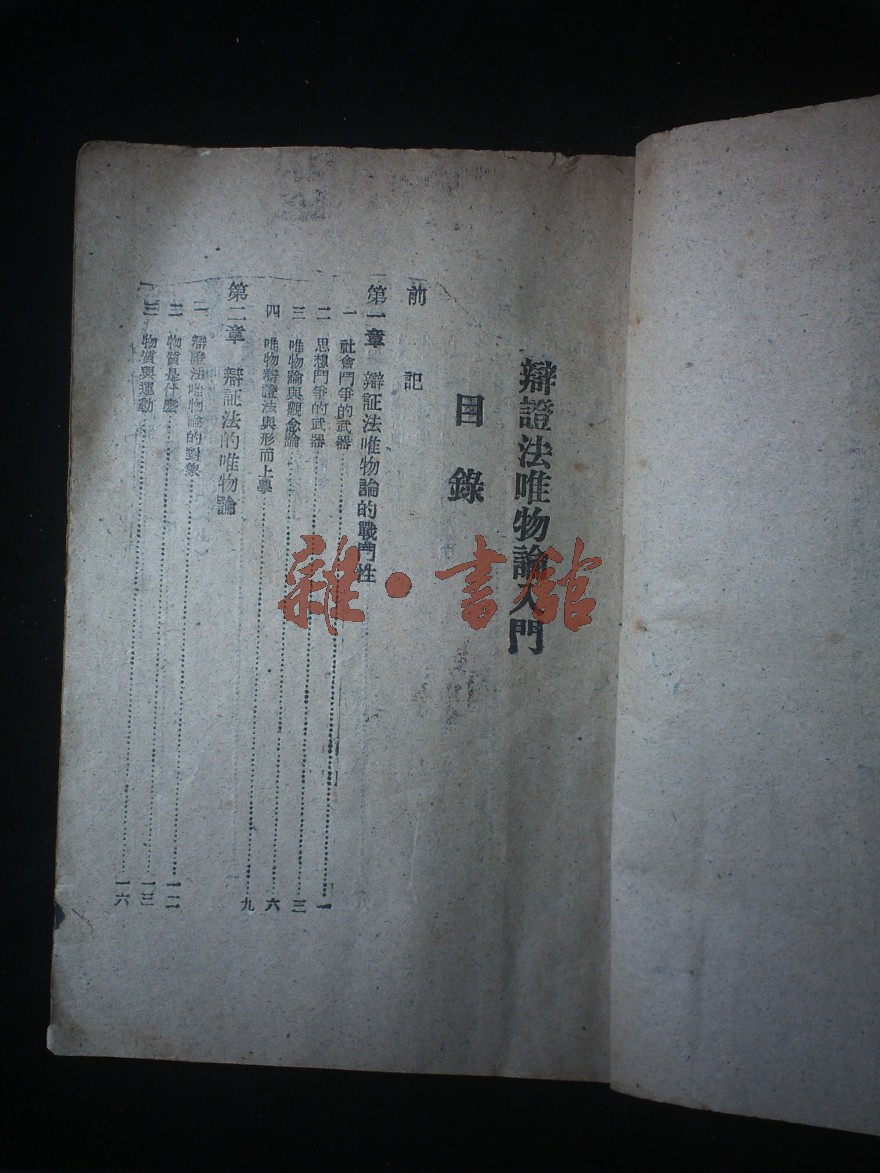 辯證法唯物論入門
目錄
前記
第一章 辯証法唯物論的戰鬥性
一 社會鬥爭的武器 一
二 思想鬥爭的武器 三
三 唯物論與觀念論 六
四 唯物辯證法與形而上學 九
第二章 辯証法的唯物論
一 辯證法唯物論的對象 一二
二 物質是什麼 一三
三 物質與運動 一六
雜·書館